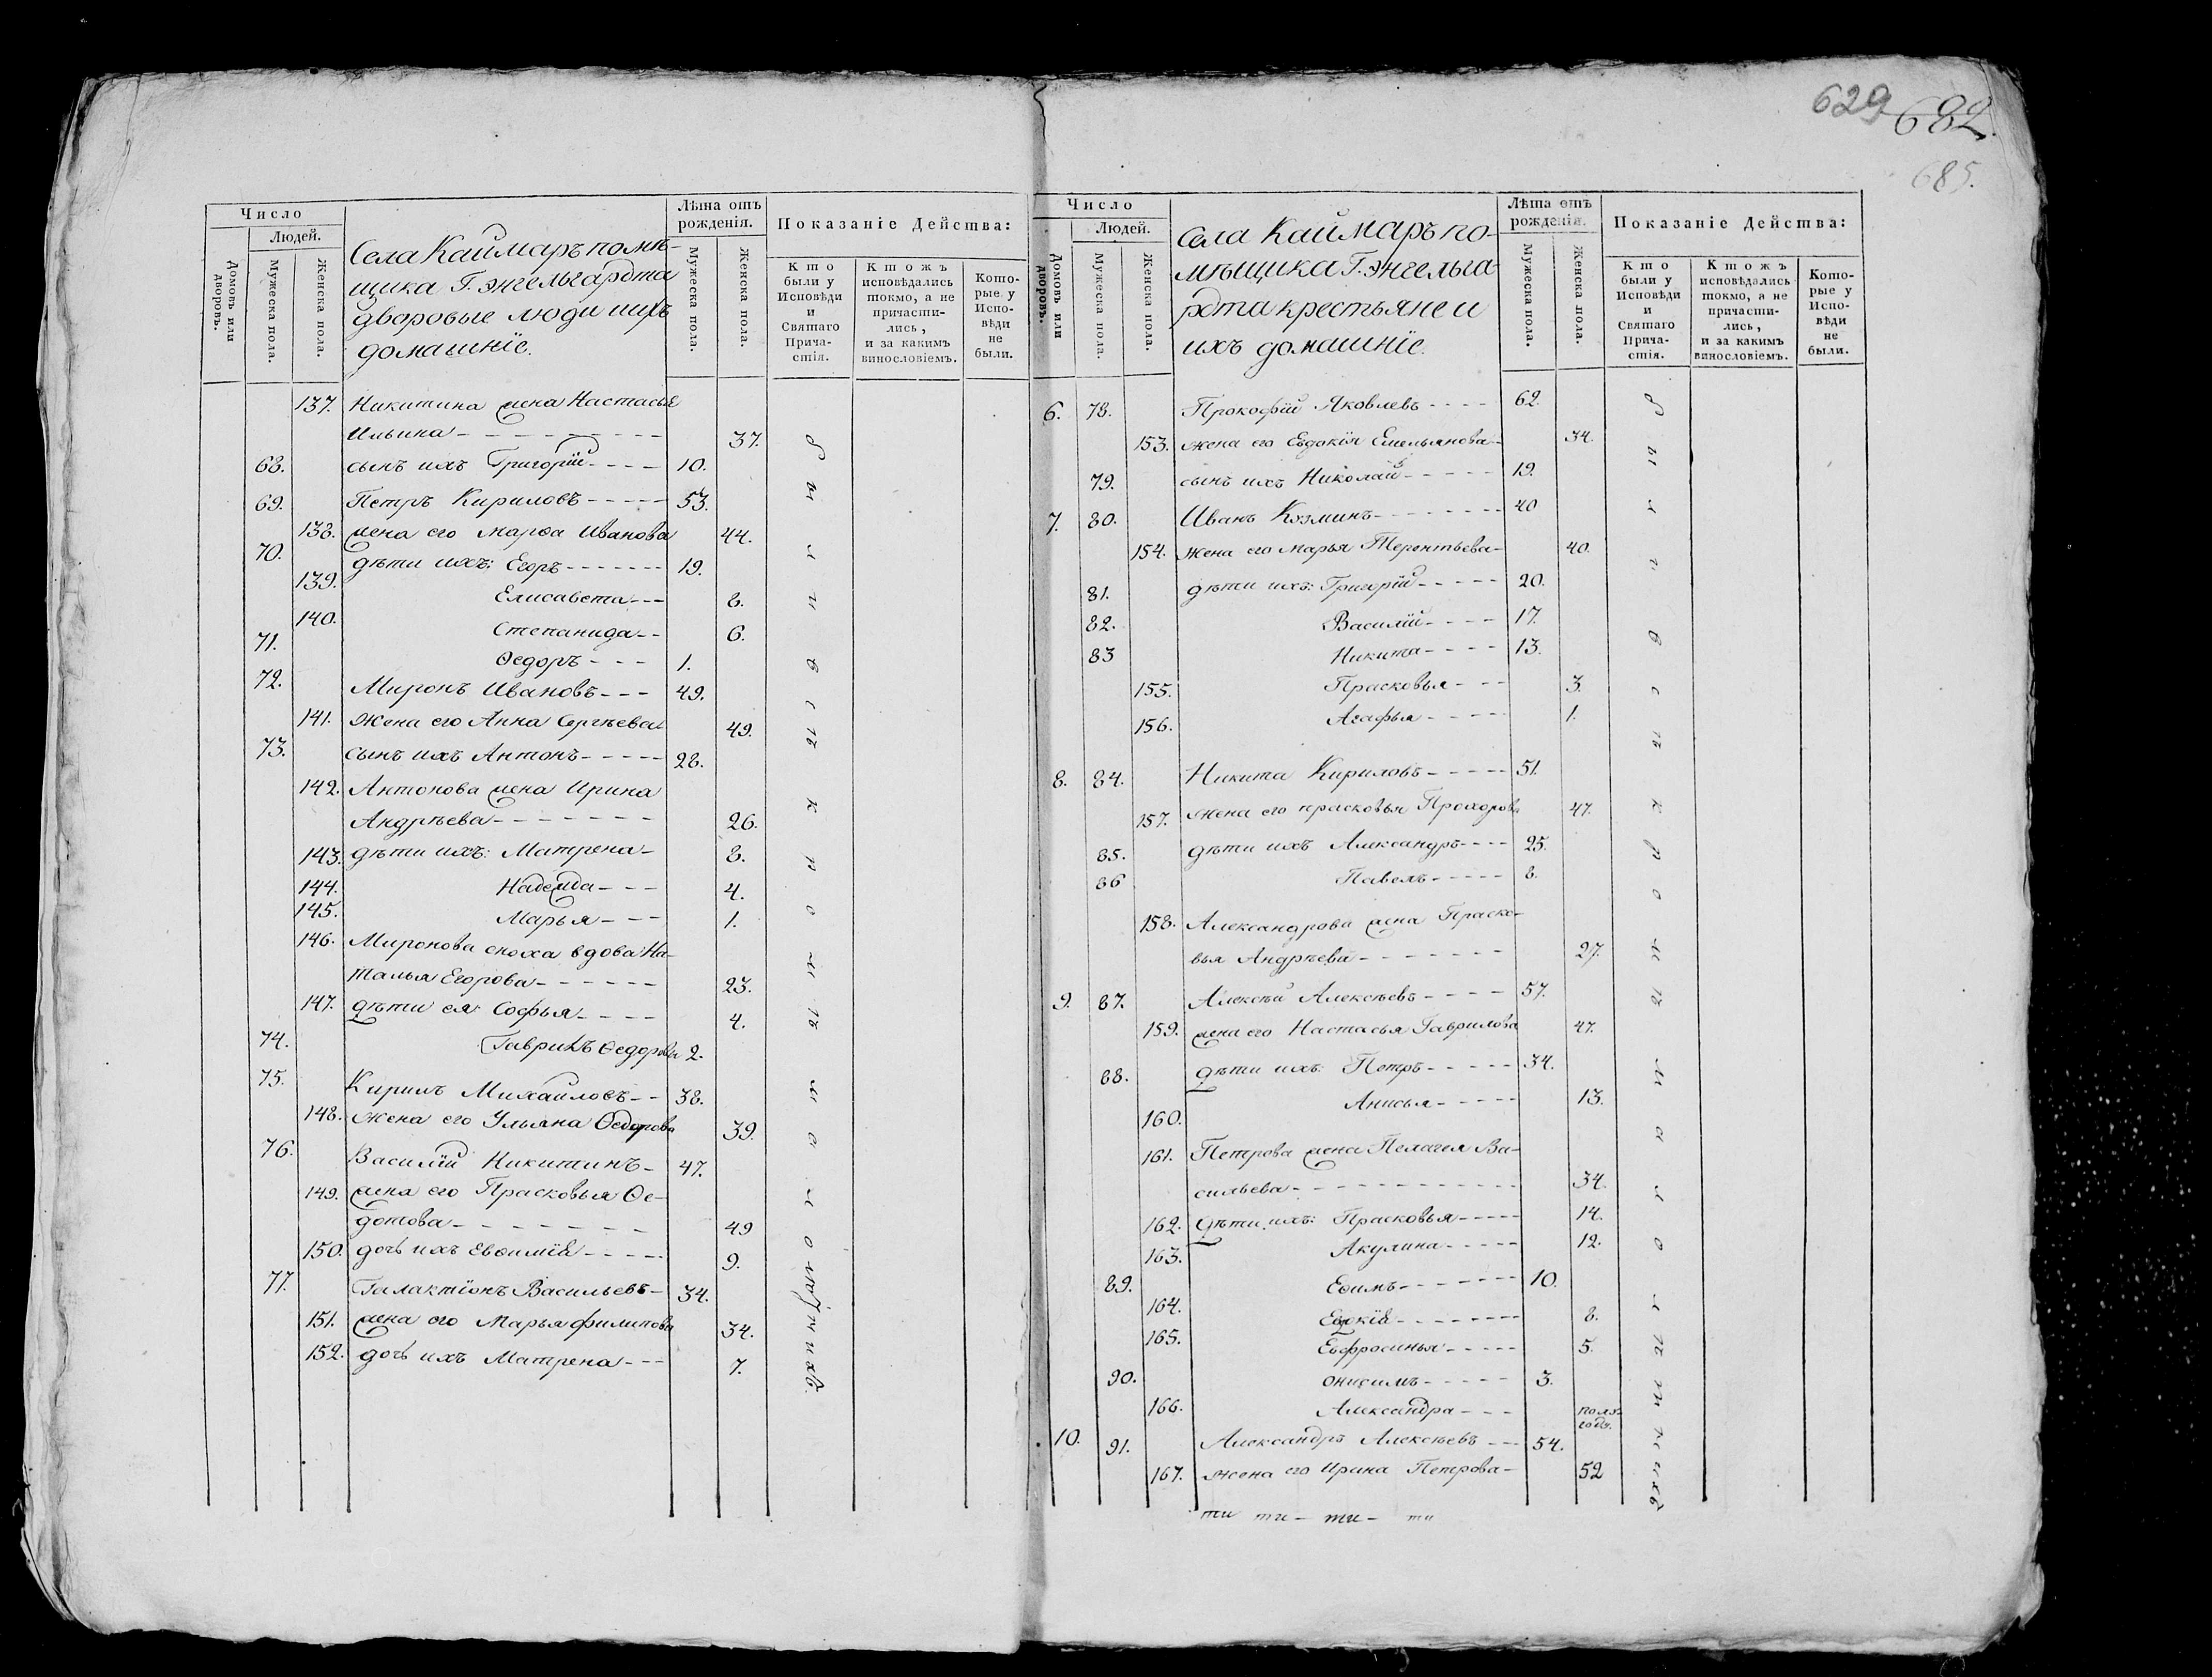 629 682.
685.
Число
Людей.
Домовъ или дворовъ.
Мужеска пола.
Женска пола.
Села Каймаръ помѣ-
щика Г. Энгельгардта
дворовые люди и ихъ
домашніе.
Лѣта отъ рожденія.
Мужеска пола.
Женска пола.
Показаніе Действа:
Кто были у Исповѣди и Святаго Прича-стія.
Ктожъ исповѣдались токмо, а не причасти-лись, и за какимъ винословіемъ.
Кото-рые у Испо-вѣди не были.
137. Никитина жена Настасья
Ильина - - - 37.
68. сынъ ихъ Григорій - - - 10.
69. Петръ Кириловъ - - - 53.
138. жена его Марѳа Иванова 44.
70. дѣти ихъ: Егоръ - - - 19.
139. Елисавета - - - 8.
140. Степанида - - 6.
71. Ѳедоръ - - - 1.
72. Миронъ Ивановъ - - - 49.
141. жена его Анна Сергѣева 49.
73. сынъ ихъ Антонъ - - - 28.
142. Антонова жена Ирина
Андрѣева - - - 26.
143. дѣти ихъ: Матрена - 8.
144. Надежда - - - 4.
145. Марья - - - 1.
146. Миронова сноха вдова На-
талья Егорова - - - 23.
147. дѣти ея: Софья - - - 4.
74. Гаврилъ Ѳедоровъ 2.
75. Кирилъ Михайловъ - - 38.
148. жена его Ульяна Ѳедорова 39.
76. Василій Никитинъ - 47.
149. жена его Прасковья Ѳе-
дотова - - - 49
150. дочь ихъ Евѳимія - - - 9.
77. Галактіонъ Васильевъ - 34.
151. жена его Марья Филипова 34.
152. дочь ихъ Матрена - - - 7.
Число
Людей.
Домовъ или дворовъ.
Мужеска пола.
Женска пола.
Села Каймаръ по-
мѣщика Г. Энгельга-
рдта крестьяне и
ихъ домашніе.
Лѣта отъ рожденія.
Мужеска пола.
Женска пола.
Показаніе Действа:
Кто были у Исповѣди и Святаго Прича-стія.
Ктожъ исповѣдались токмо, а не причасти-лись, и за какимъ винословіемъ.
Кото-рые у Испо-вѣди не были.
6. 78. Прокофій Яковлевъ - - - 62.
153. жена его Евдокія Емельянова - 34.
79. сынъ ихъ Николай - - - 19.
7. 80. Иванъ Козминъ - - - 40
154. жена его Марья Терентьева - 40.
81. дѣти ихъ: Григорій - - - 20.
82. Василій - - - 17.
83 Никита - - - 13.
155. Прасковья - - - 3.
156. Агафья - - - 1.
8. 84. Никита Кириловъ - - - 51.
157. жена его Прасковья Прохорова 47.
85. дѣти ихъ Александръ - - - 25.
86 Павелъ - - - 8.
158. Александрова жена Праско-
вья Андрѣева - - - 27.
9. 87. Алексѣй Алексѣевъ - - - 57.
159. жена его Настасья Гаврилова 47.
88. дѣти ихъ: Петръ - - - 34.
160. Анисья - - - 13.
161. Петрова жена Пелагея Ва-
сильева - - - 34.
162. дѣти ихъ: Прасковья - - - 14.
163. Акулина - - - 12.
89. Еѳимъ - - - 10.
164. Евдокія - - - 8.
165. Евфросинья - - - 5.
90. Онисимъ - - - 3.
166. Александра - - - полу-
года.
10. 91. Александръ Алексѣевъ - - 54.
167. жена его Ирина Петрова - 52
ти ти - ти - ти